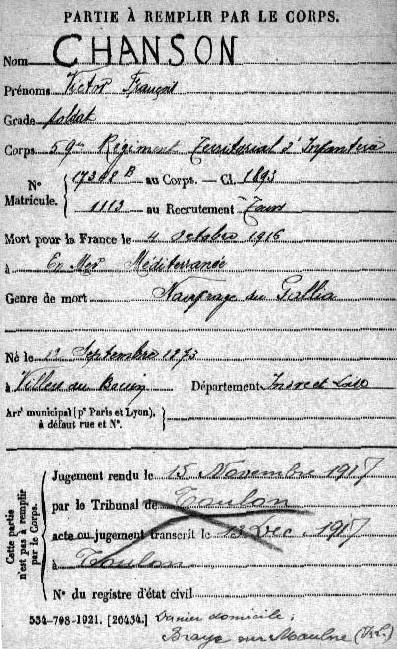 PARTIE À REMPLIR PAR LE CORPS.
Nom CHANSON
Prénoms Victor François
Grade soldat
Corps 59me Régiment Territorial d'Infanterie
N° Matricule. 17398 B au Corps. — Cl. 1893
1113 au Recrutement Tours
Mort pour la France le 4 octobre 1916
à En Mer Méditerranée
Genre de mort Naufrage du Gallia
Né le Septembre 1873
à Villiers au Bouin Département Indre et Loire
Arrt municipal (pr Paris et Lyon),
à défaut rue et N°.
Cette partie
n'est pas à remplir
par le Corps.
Jugement rendu le 15 Novembre 1917
par le Tribunal de Toulon
acte ou jugement transcrit le 13 Dec. 1917
à Toulon
N° du registre d'état civil
534-708-1921. [26434.] Dernier domicile :
Braye sur Maulne (I.L.)